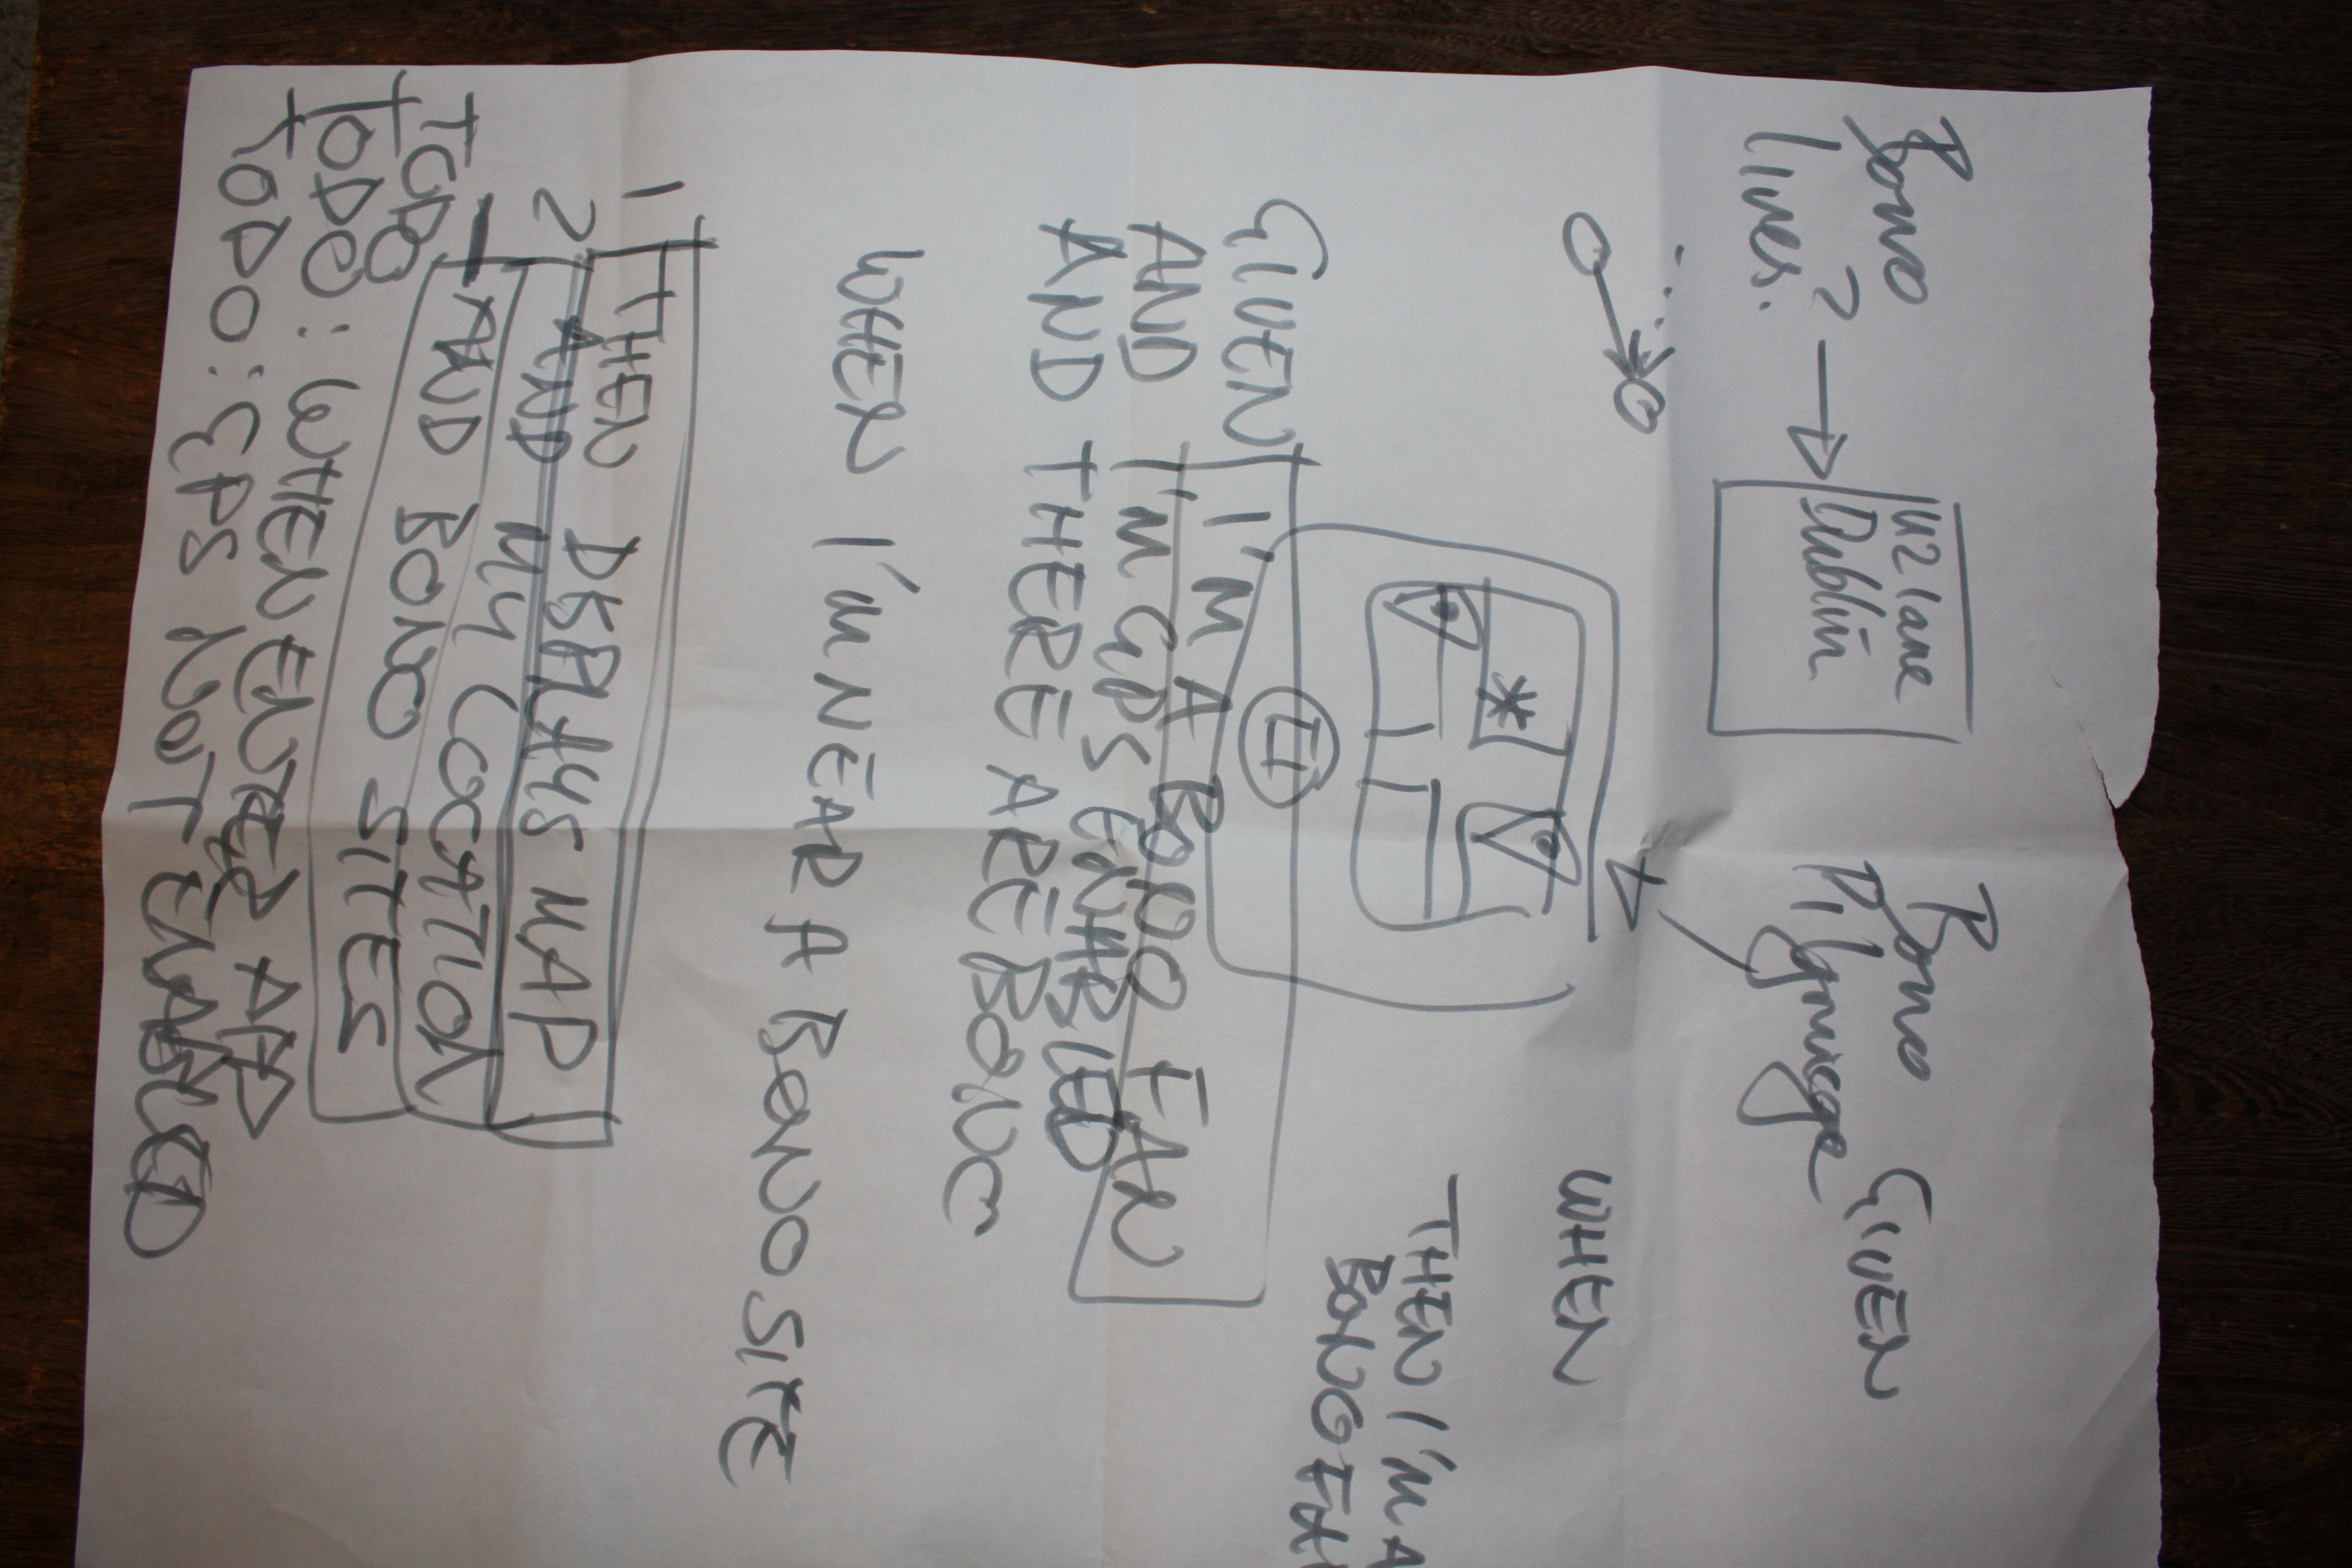 Bono
lives. ?
U2 lane
Dublin
Bono
Pilgmicge
GIVEN
WHEN
THEN I'M A
BONO FAN
GIVEN I'M A BONO FAN
AND I'M GPS ENABLED
AND THERE ARE BONO
WHEN I'M NEAR A BONO SITE
1 THEN DISPLAYS MAP
2 AND MY LOCATION
AND BONO SITES
TODO
TODO: WHEN ENTER APP
TODO: GPS NOT ENABLED